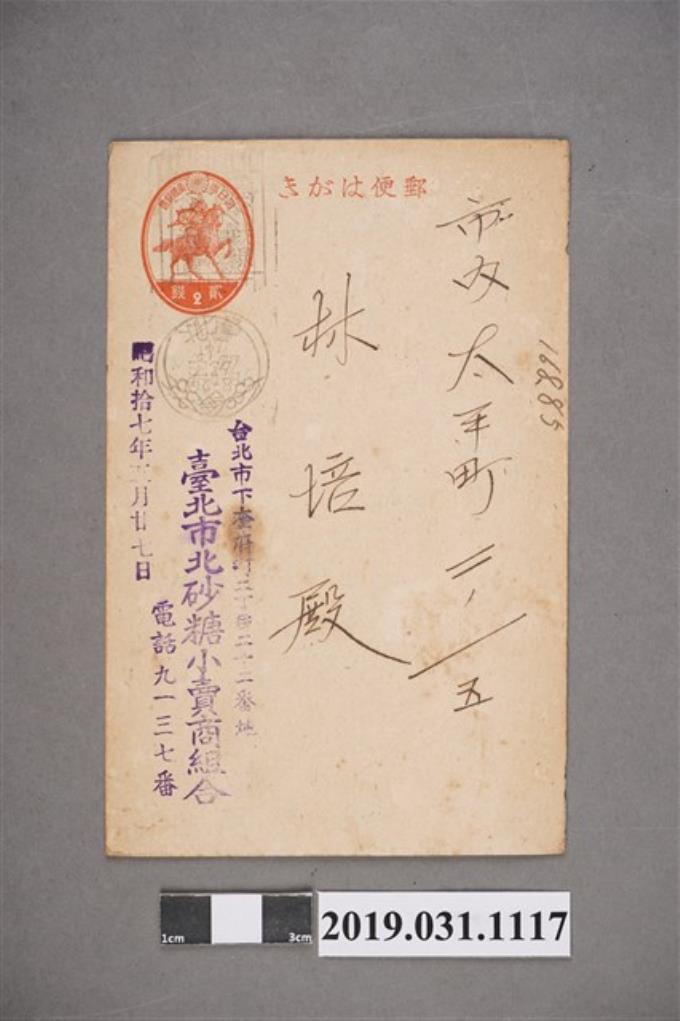 郵便はがき
大日本帝國郵便
貳 2 錢
市内太平町二ノ一五
林培殿
16885
台北市下奎府町三丁目二十二番地
臺北市北砂糖小賣商組合
電話九一三七番
昭和拾七年 月廿七日
1cm 3cm
2019.031.1117